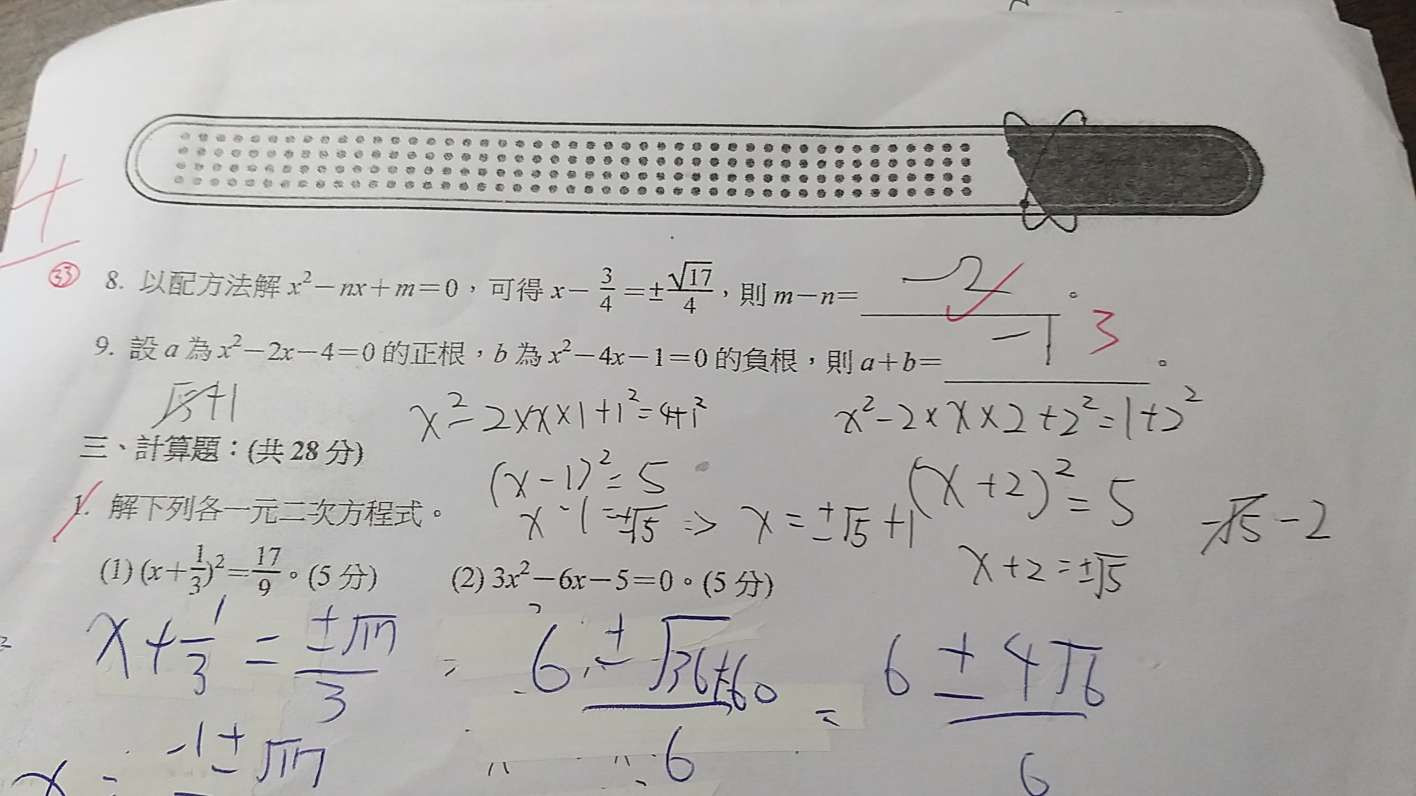 4
㉝ 8. 以配方法解 x²－nx＋m＝0，可得 x－3/4＝±√17/4，則 m－n＝ －2 。
9. 設 a 為 x²－2x－4＝0 的正根，b 為 x²－4x－1＝0 的負根，則 a＋b＝ －1 3 。
√5+1
x²－2×x×1+1²=4+1²
x²－2×x×2+2²=1+2²
三、計算題：(共 28 分)
(x－1)²=5
(x+2)²=5
1. 解下列各一元二次方程式。
x－1=±√5 => x=±√5+1
－√5－2
x+2=±√5
(1) (x＋1/3)²＝17/9。(5 分)
(2) 3x²－6x－5＝0。(5 分)
x+1/3=±√17/3
= 6±√36+60/6 = 6±4√6/6
x = －1±√17